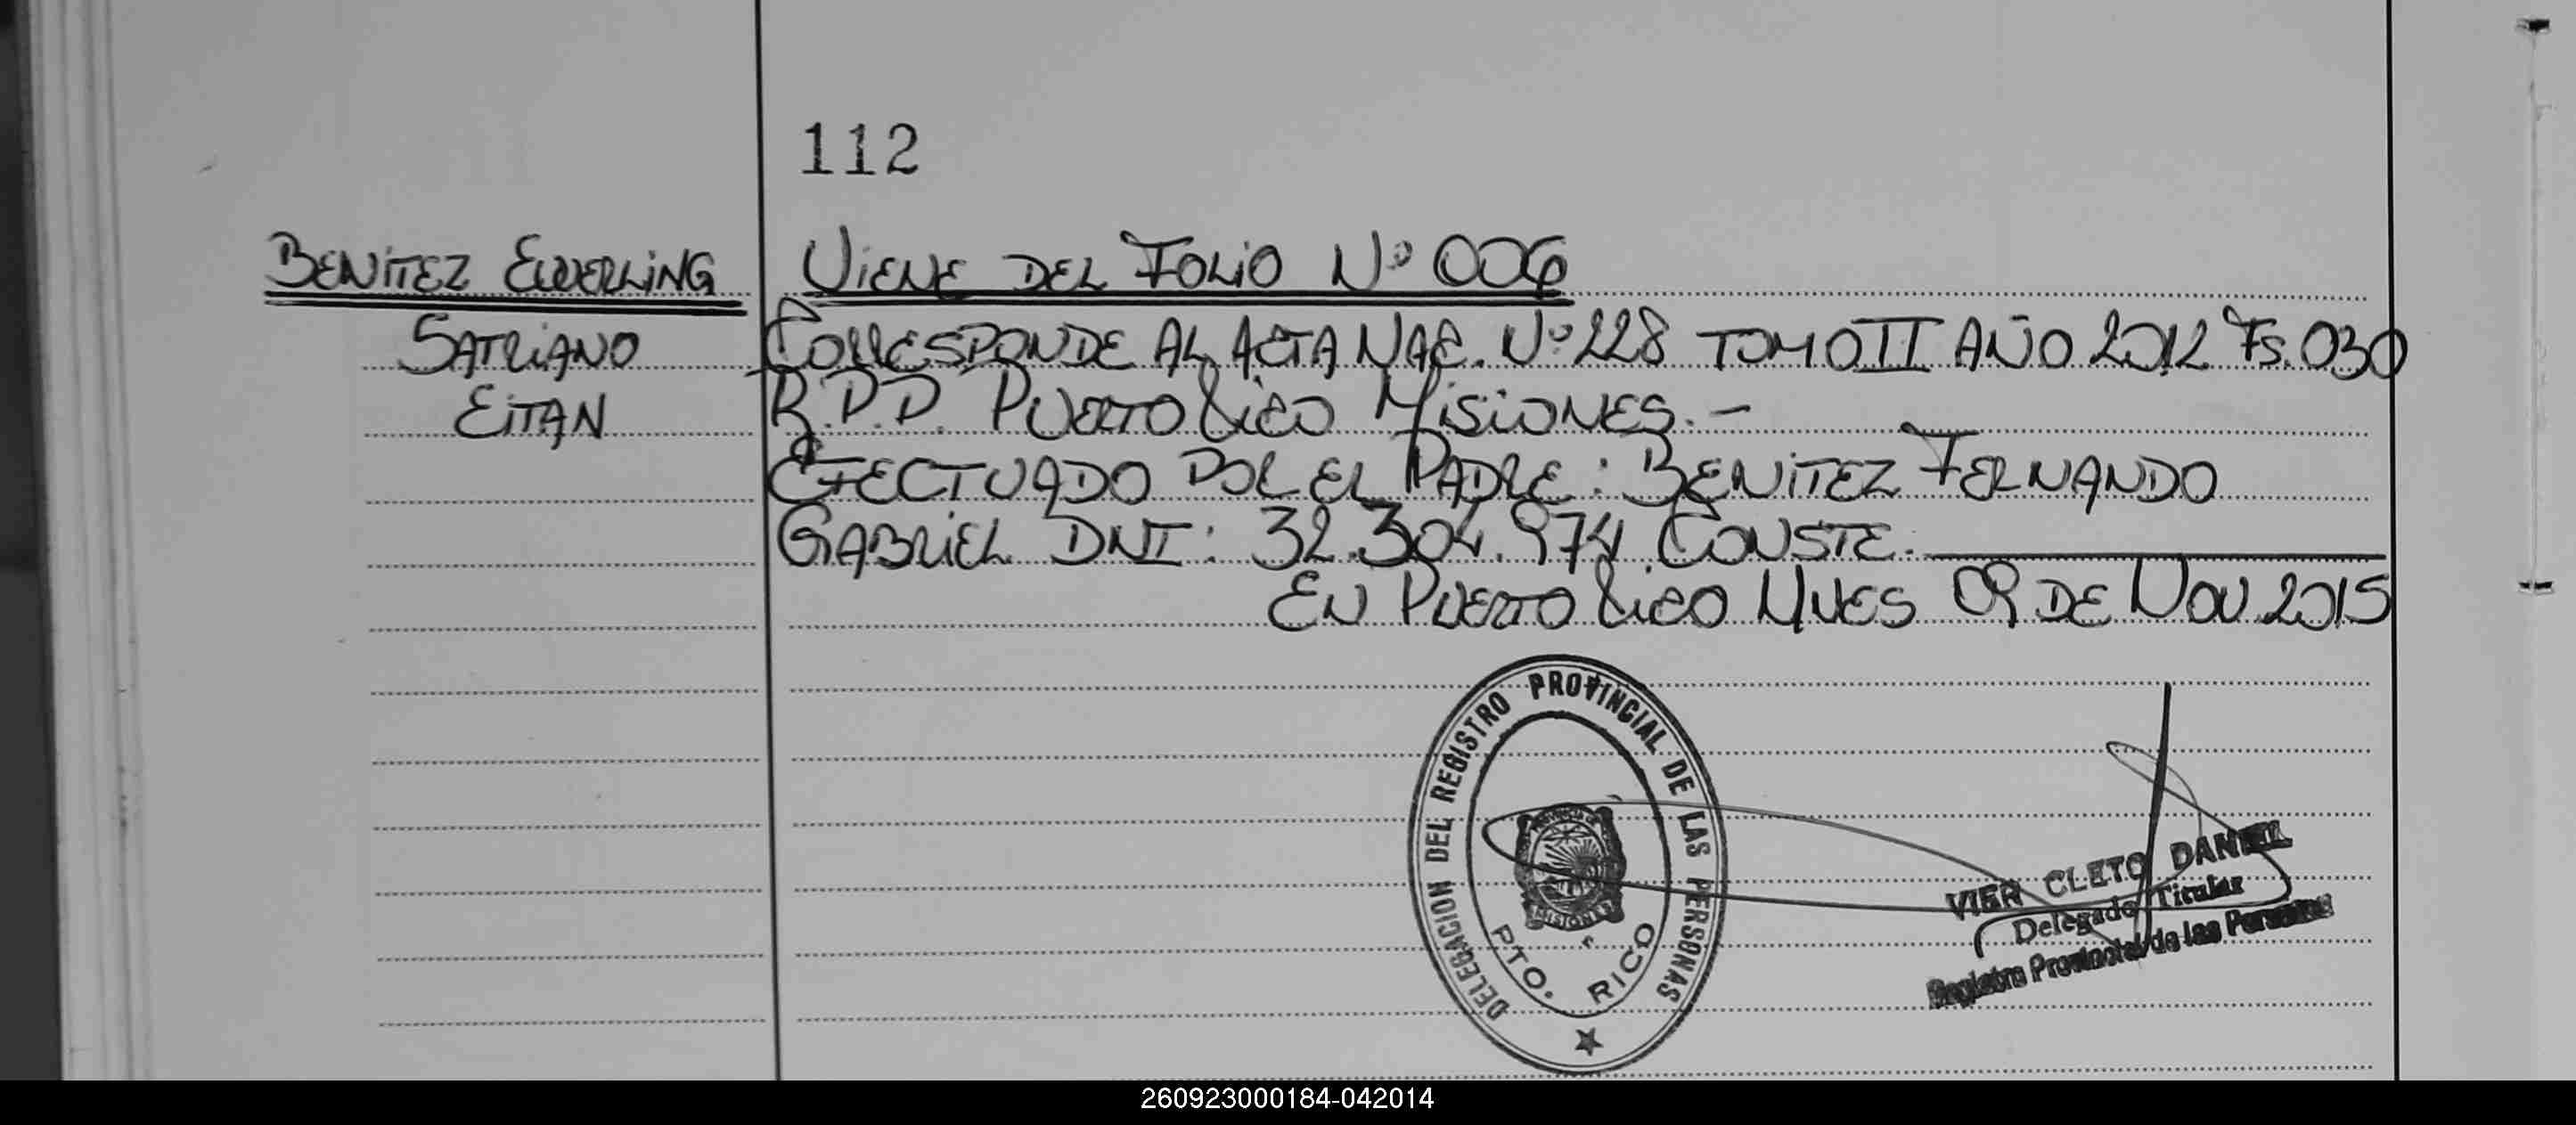 112
BENITEZ EWERLING
SATRIANO
EITAN
VIENE DEL FOLIO Nº 006
CORRESPONDE AL ACTA NAC. Nº 228 TOMO II AÑO 2012 FS. 030
R.P.P. PUERTO RICO MISIONES.-
EFECTUADO POR EL PADRE: BENITEZ FERNANDO
GABRIEL DNI: 32.304.974 CONSTE.
EN PUERTO RICO MNES 09 DE NOV 2015
DELEGACION DEL REGISTRO PROVINCIAL DE LAS PERSONAS
MISIONES
PTO. RICO
VIER CLETO DANIEL
Delegado Titular
Registro Provincial de las Personas
260923000184-042014